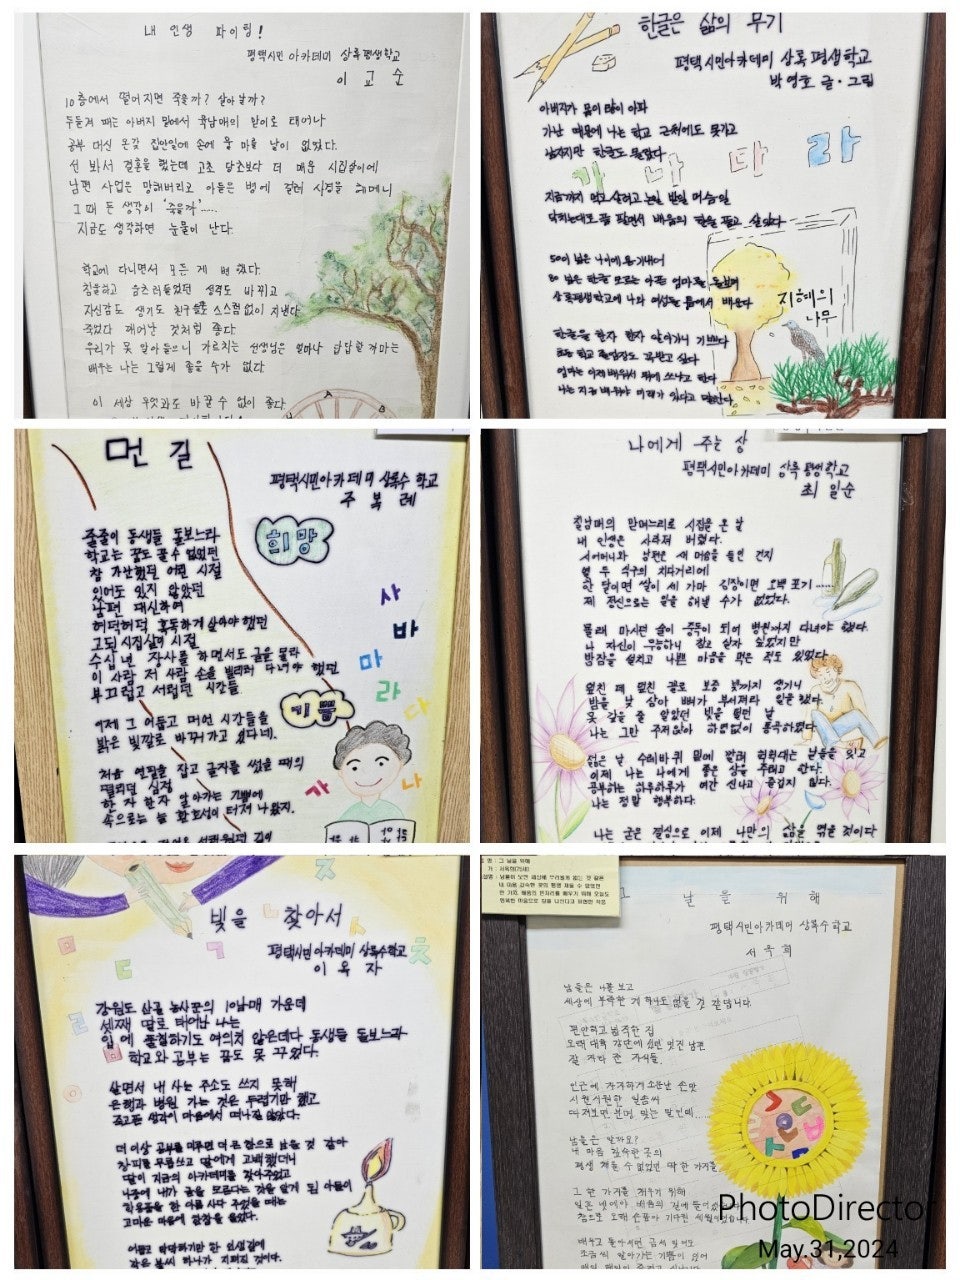 내 인생 파이팅!
평택시민 아카데미 상록평생학교
이 교 순
10층에서 떨어지면 죽을까? 살아날까?
두들겨 패는 아버지 밑에서 육남매의 맏이로 태어나
공부 대신 온갖 집안일에 손에 물 마를 날이 없었다.
선 봐서 결혼을 했는데 고초 당초보다 더 매운 시집살이에
남편 사업은 망해버리고 아들은 병에 걸려 사경을 헤매니
그 때 든 생각이 '죽을까'.....
지금도 생각하면 눈물이 난다.
학교에 다니면서 모든 게 변했다.
침울하고 움츠러들었던 성격도 바뀌고
자신감도 생기고 친구들도 스스럼없이 지낸다
죽었다 깨어난 것처럼 좋다
우리가 못 알아들으니 가르치는 선생님은 얼마나 답답할까마는
배우는 나는 그렇게 좋을 수가 없다
이 세상 무엇과도 바꿀 수 없이 좋다
한글은 삶의 무기
평택시민아카데미 상록평생학교
박영호 글·그림
가 나 다 라
아버지가 몸이 많이 아파
가난 때문에 나는 학교 근처에도 못가고
남자지만 한글도 몰랐다
지금까지 먹고 살려고 논일 밭일 머슴일
닥치는대로 품 팔면서 배움의 한을 풀고 싶었다
50이 넘은 나이에 용기내어
80 넘은 한글 모르는 아픈 엄마를 돌보며
상록평생학교에 나와 여성들 틈에서 배운다
한글을 한자 한자 알아가니 기쁘다
초등 학교 졸업장도 꼭받고 싶다
엄마는 이제 배워서 뭐에 쓰냐고 한다
나는 지금 배워야 미래가 있다고 말한다
지혜의
나무
먼 길
평택시민아카데미 상록수 학교
주 복 례
희망
줄줄이 동생들 돌보느라
학교는 꿈도 꿀 수 없었던
참 가난했던 어린 시절
있어도 있지 않았던
남편 대신하여
허덕허덕 혹독하게 살아야 했던
고된 시집살이 시절
수십 년 장사를 하면서도 글을 몰라
이 사람 저 사람 손을 빌리러 다녀야 했던
부끄럽고 서럽던 시간들
사
바
마
라
다
나
가
기쁨
이제 그 어둡고 머언 시간들을
밝은 빛깔로 바꾸어가고 있다네.
처음 연필을 잡고 글자를 썼을 때의
떨리던 심정
한 자 한자 알아가는 기쁨에
속으로는 늘 환호성이 터져 나왔지.
나에게 주는 상
평택시민아카데미 상록 평생학교
최 일순
칠남매의 맏며느리로 시집을 온 날
내 인생은 사라져 버렸다.
시어머니와 남편은 새 머슴을 들인 건지
열 두 식구의 치다꺼리에
한 달이면 쌀이 세 가마 김장이면 오백 포기......
제 정신으로는 일을 해낼 수가 없었다.
몰래 마시던 술이 중독이 되어 병원까지 다녀야 했다.
나 자신이 무능하니 참고 살자 싶었지만
밤잠을 설치고 나쁜 마음을 먹은 적도 있었다.
엎친 데 덮친 꼴로 보증 빚까지 생기니
밤을 낮 삼아 뼈가 부서져라 일을 했다.
못 갚을 줄 알았던 빚을 털던 날
나는 그만 주저앉아 하염없이 통곡하였다.
젊은 날 수레바퀴 밑에 깔려 헉헉대는 날들을 잊고
이제 나는 나에게 좋은 상을 주려고 한다.
공부하는 하루하루가 여간 신나고 즐겁지 않다.
나는 정말 행복하다.
나는 굳은 결심으로 이제 나만의 삶을 엮을 것이다
빛을 찾아서
평택시민 아카데미 상록수학교
이 옥 자
강원도 산골 농사꾼의 10남매 가운데
셋째 딸로 태어난 나는
입에 풀칠하기도 여의치 않은데다 동생들 돌보느라
학교와 공부는 꿈도 못 꾸었다.
살면서 내 사는 주소도 쓰지 못해
은행과 병원 가는 것은 두렵기만 했고
죽고픈 생각이 마음에서 떠나질 않았다.
더 이상 공부를 미루면 더 큰 한으로 남을 것 같아
창피를 무릅쓰고 딸에게 고백했더니
딸이 지금의 아카데미를 찾아주었고
나중에 내가 글을 모른다는 것을 알게 된 아들이
학용품을 한 아름 사다 주었을 때는
고마운 마음에 참참을 울었다.
어둡고 막막하기만 한 인생길에
작은 불씨 하나가 지펴진 것이다.
그 날을 위해
평택시민아카데미 상록수학교
서 옥 희
남들은 나를 보고
세상에 부족한 게 하나도 없을 것 같답니다
편안하고 넘죽한 집
오랜 대학 강단에 섰던 멋진 남편
잘 자라 준 자식들.
인근에 자자하게 소문난 손맛
시원시원한 말솜씨
따져보면 분명 맞는 말인데.....
남들은 알까요?
내 마음 깊숙한 곳의
평생 채울 수 없었던 딱 한 가지를
그 한 가지를 채우기 위해
참으로 오랜 손꼽아 기다린 세월이었습니다
PhotoDirector
May.31,2024